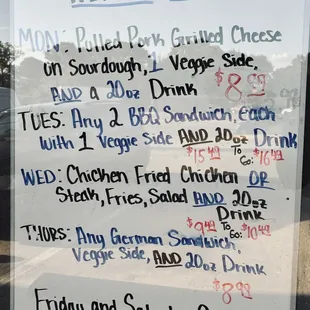 MON: Pulled Pork Grilled Cheese
on Sourdough, 1 Veggie Side,
AND a 20oz Drink $8.99
TUES: Any 2 BBQ Sandwich, each
with 1 Veggie Side AND 20oz Drink
$15.49 To Go: $16.49
WED: Chicken Fried Chicken OR
Steak, Fries, Salad AND 20oz
Drink
$9.49 To Go: $10.49
THURS: Any German Sandwich,
Veggie Side, AND 20oz Drink
$8.99
Friday and